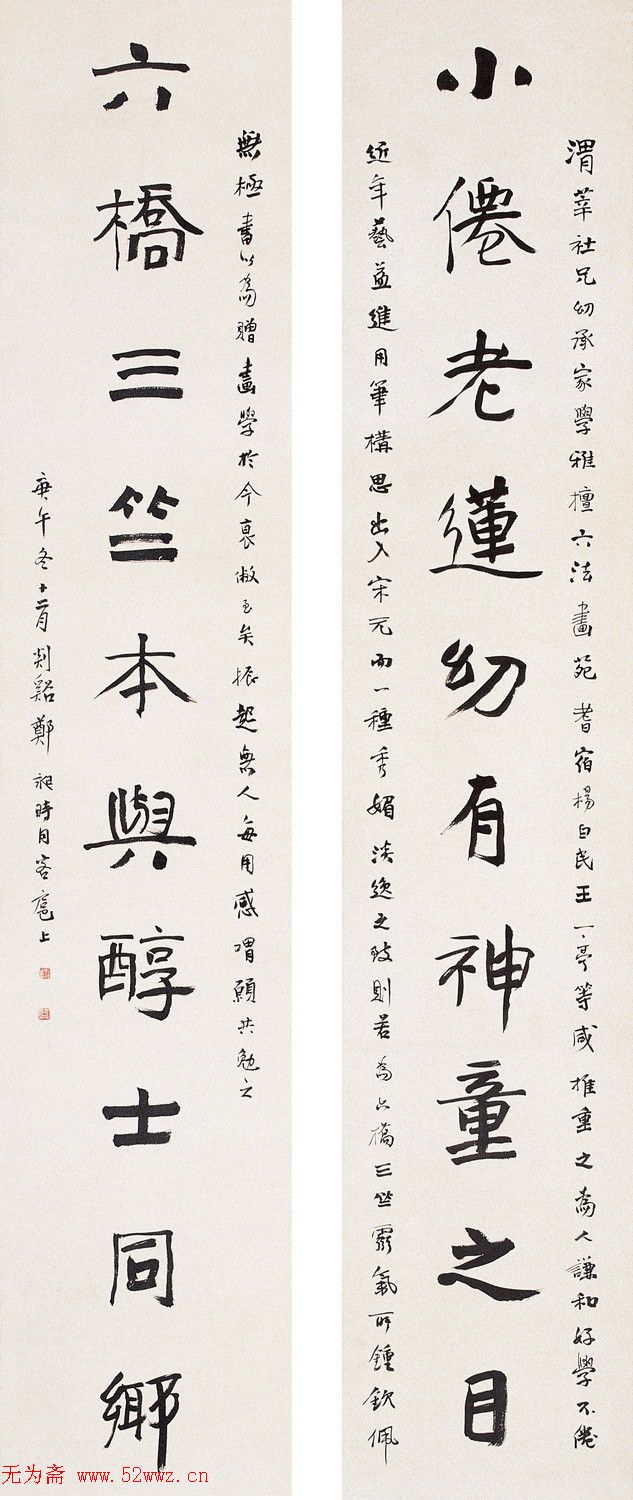 小僊老蓮幼有神童之目
六橋三竺本與醇士同鄉
渭莘社兄幼承家學雅擅六法畫苑耆宿楊白民王一亭等咸推重之為人謙和好學不倦
近年藝益進用筆構思出入宋元而一種秀媚淡逸之致則若為六橋三竺靈氣所鍾欽佩
無極書以為贈畫學於今衰敝至矣振起無人每用感喟願共勉之
庚午冬十二月剡谿鄭昶時同客扈上
无为斋 www.52wwz.cn